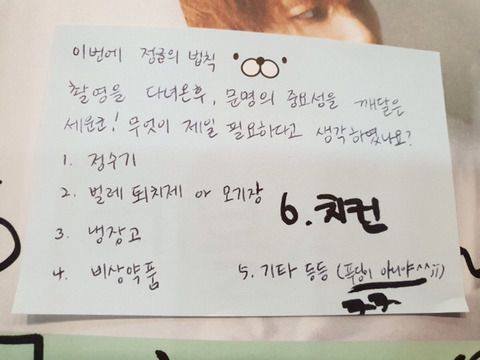 이번에 정글의 법칙
촬영을 다녀온후, 문명의 중요성을 깨달은
세운코! 무엇이 제일 필요하다고 생각하였나요?
1. 정수기
2. 벌레 퇴치제 or 모기장
3. 냉장고
6. 치킨
4. 비상약품
5. 기타 등등 (푸딩이 아니야^^;;)